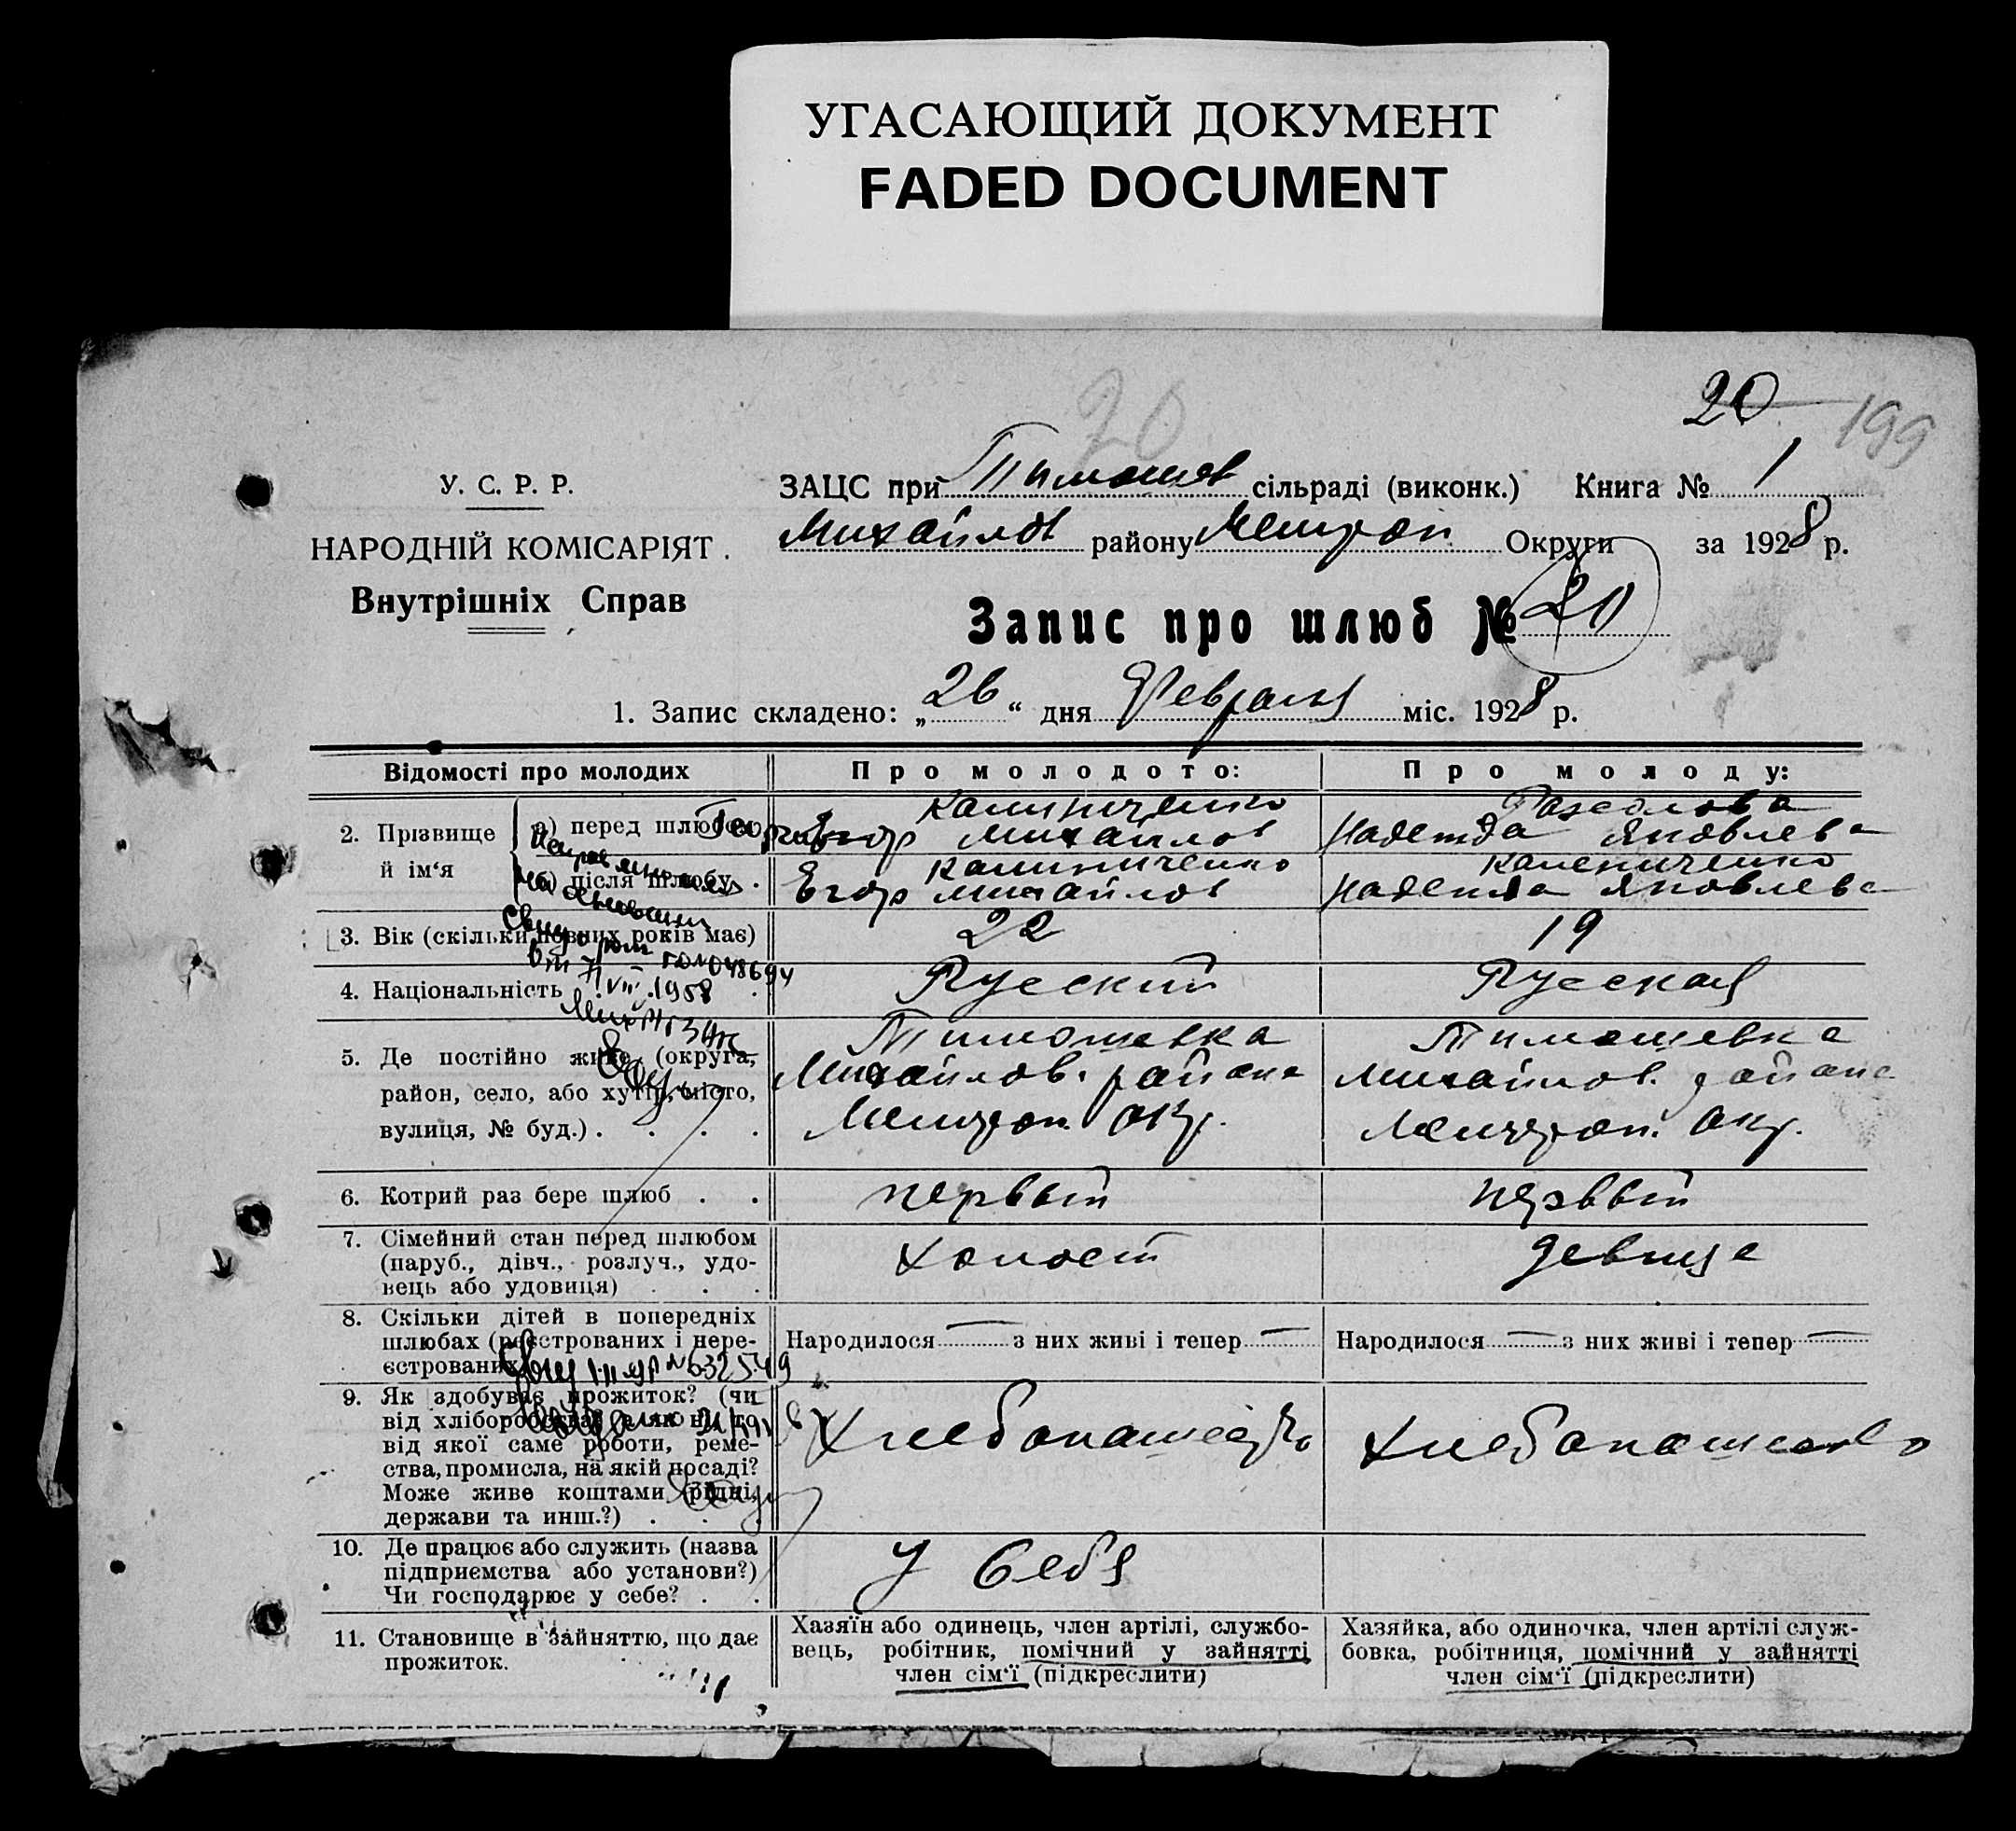 УГАСАЮЩИЙ ДОКУМЕНТ
FADED DOCUMENT
20
20
199
У. С. Р. Р.
НАРОДНІЙ КОМІСАРІЯТ.
Внутрішніх Справ
ЗАЦС при Тимошев сільраді (виконк.) Книга № 1
Михайлов району Мелитоп. Округи за 1928 р.
Запис про шлюб № 20
1. Запис складено: „26“ дня Февраля міс. 1928 р.
Відомості про молодих
Про молодого:
Про молоду:
2. Прізвище й ім‘я
а) перед шлюбом
Калиниченко
Егор Михайлов
Надежда Яковлева
б) після шлюбу .
Калиниченко
Егор Михайлов
Калениченко
Надежда Яковлева
Георгий
3. Вік (скільки повних років має)
22
19
4. Національність
Русский
Русская
VII 1958
5. Де постійно живе (округа,
район, село, або хутір, місто,
вулиця, № буд.) . . . .
Тимошевка
Михайлов. района
Мелитоп. окр.
Тимошевка
Михайлов. района
Мелитоп. окр.
6. Котрий раз бере шлюб . .
первый
первый
7. Сімейний стан перед шлюбом
(паруб., дівч., розлуч., удо-
вець або удовиця) . . .
холост
девица
8. Скільки дітей в попередніх
шлюбах (реєстрованих і нере-
єстрованих)
Народилося — з них живі і тепер —
Народилося — з них живі і тепер —
9. Як здобуває прожиток? (чи
від хліборобства, а як ні, то
від якої саме роботи, реме-
ства, промисла, на якій посаді?
Може живе коштами рідні,
держави та инш.?) . . .
Хлебопашество
Хлебопашество
10. Де працює або служить (назва
підприємства або установи?)
Чи господарює у себе? . .
У себя
11. Становище в зайняттю, що дає
прожиток.
Хазяїн або одинець, член артілі, службо-
вець, робітник, помічний у зайнятті
член сім‘ї (підкреслити)
Хазяйка, або одиночка, член артілі служ-
бовка, робітниця, помічний у зайнятті
член сім‘ї (підкреслити)